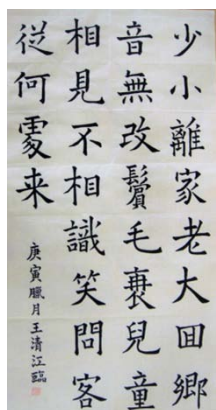 少小離家老大囬鄉
音無改鬢毛衰兒童
相見不相識笑問客
從何處来
庚寅臘月王清江臨